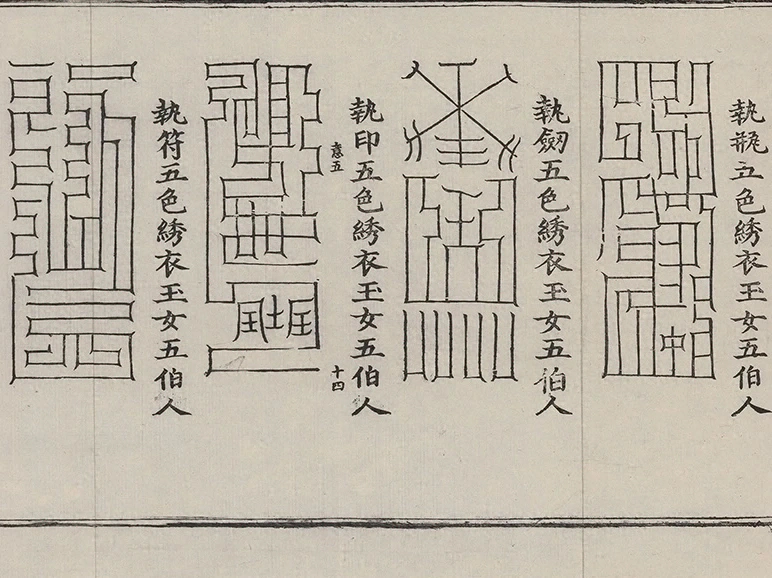 執瓶五色綉衣玉女五伯人
執劒五色綉衣玉女五伯人
執印五色綉衣玉女五伯人
意五
十四
執符五色綉衣玉女五伯人